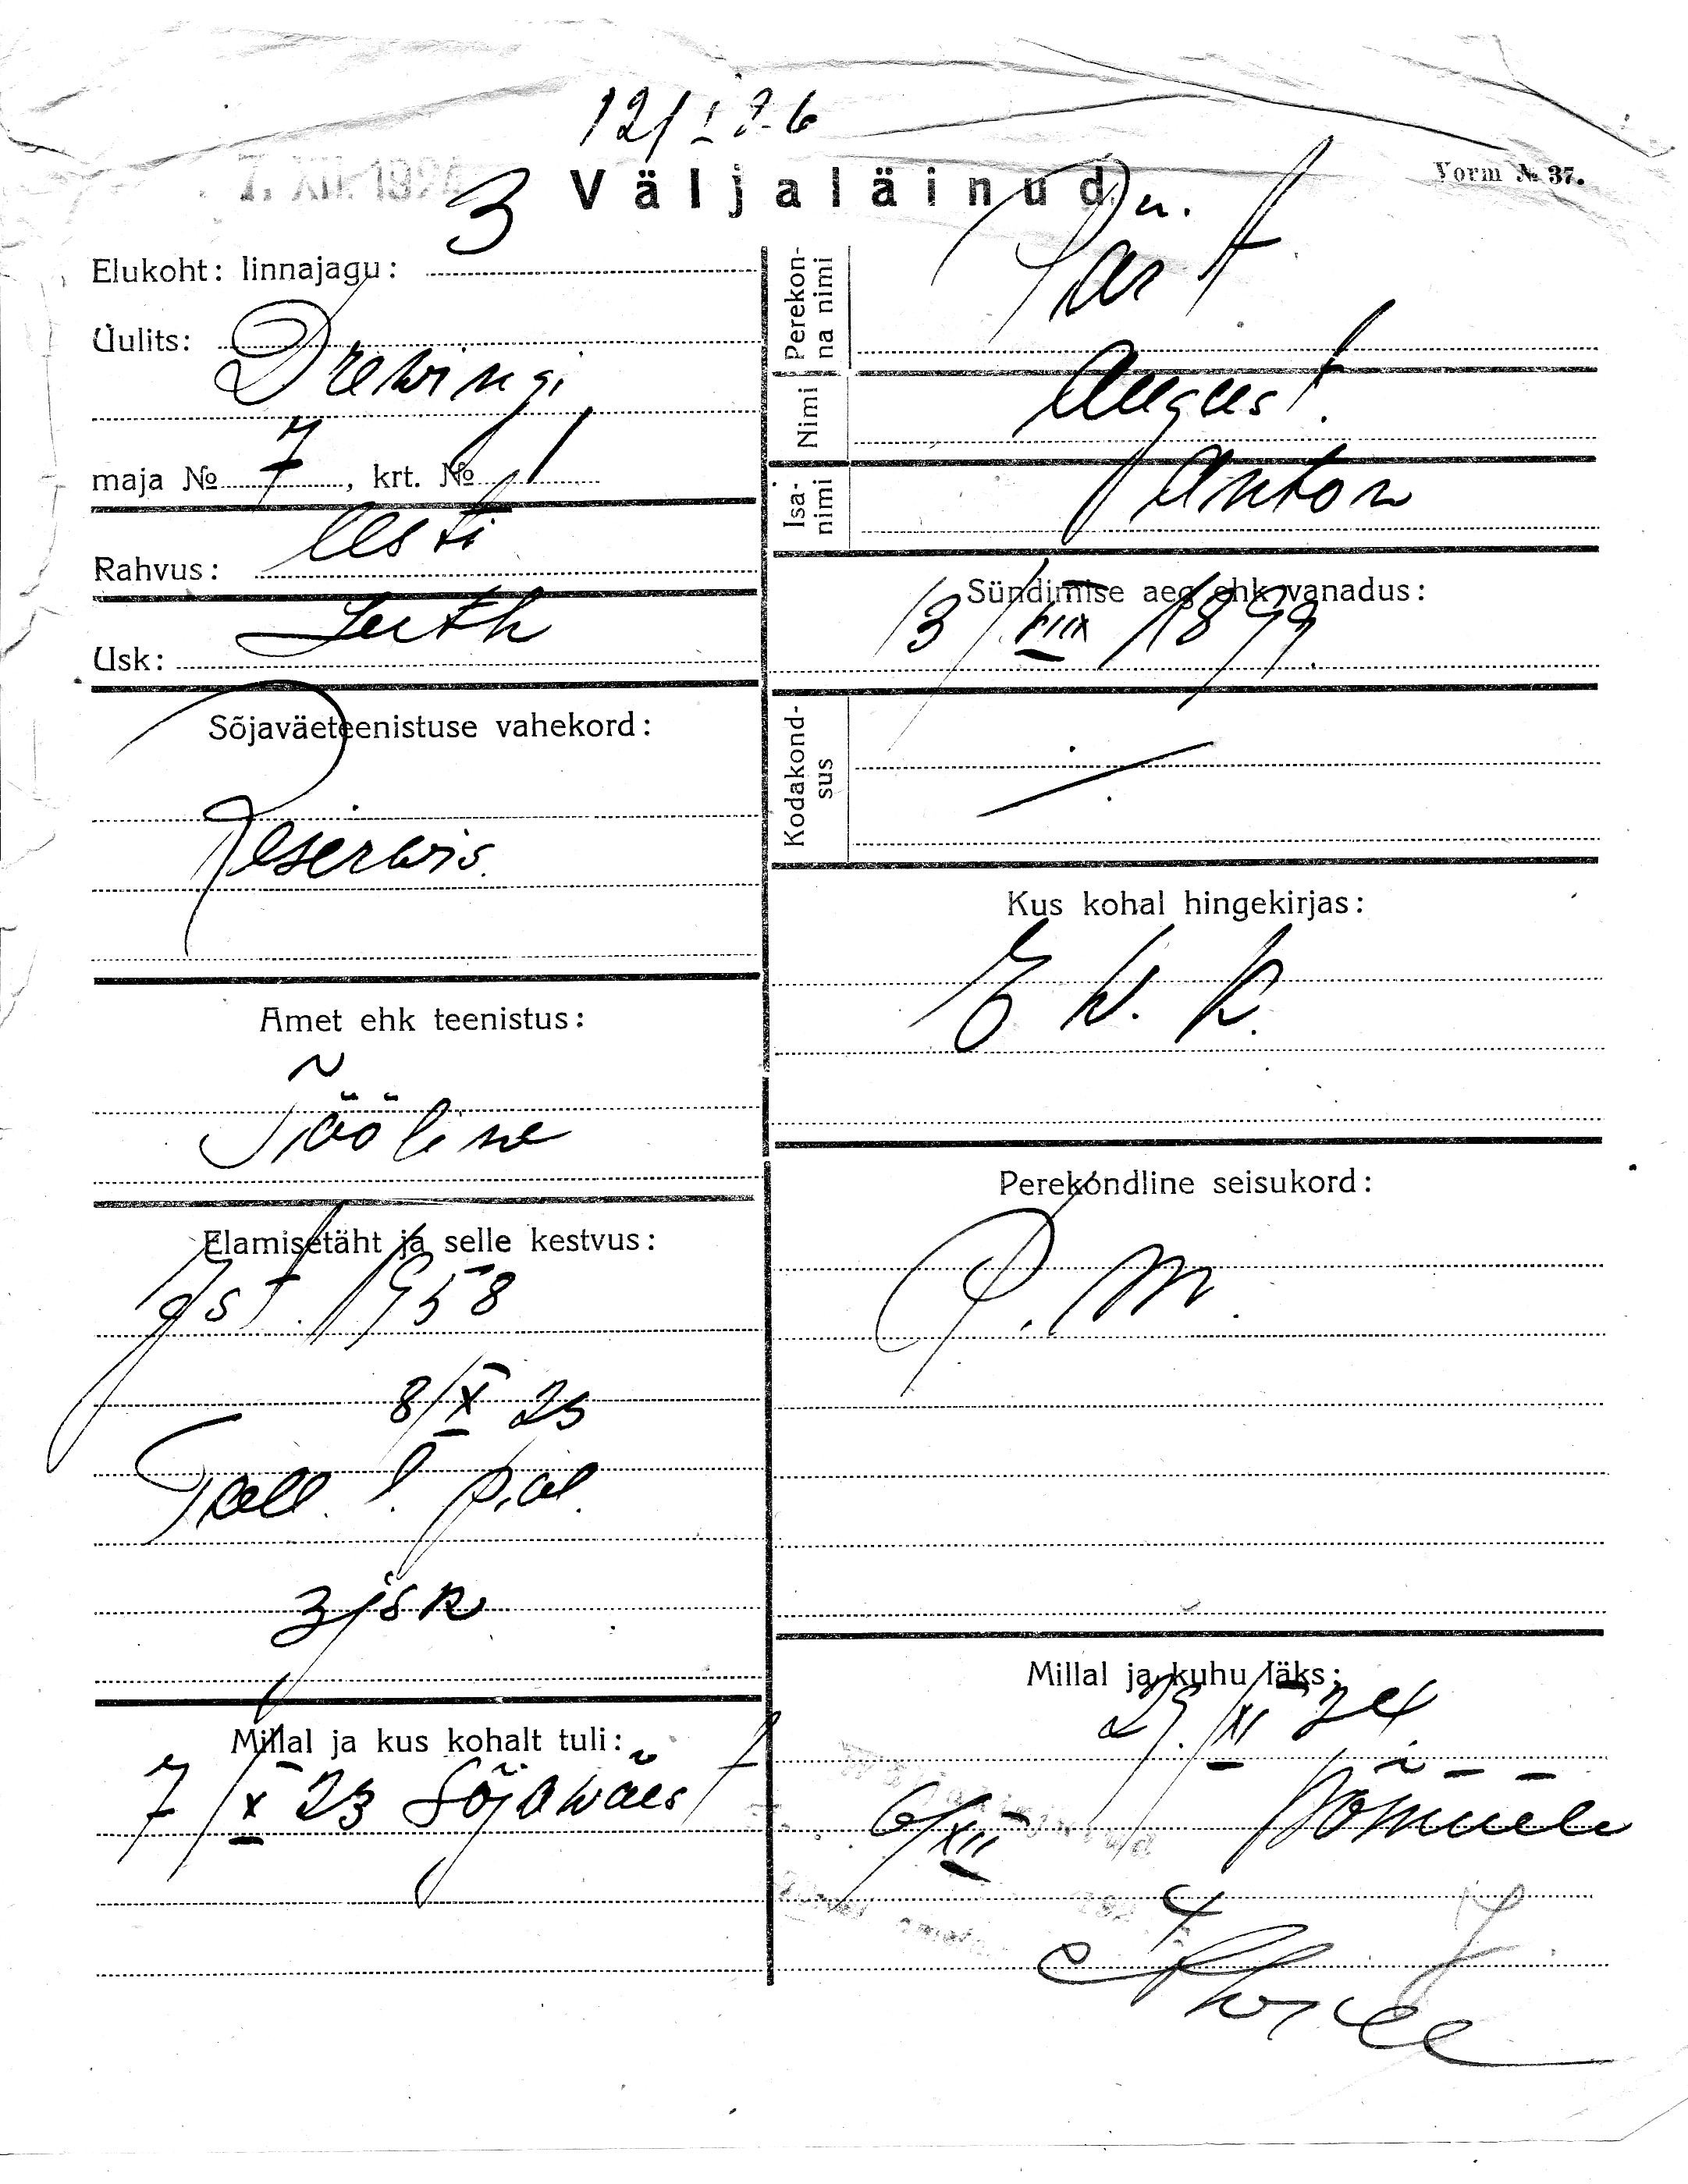 7. XII. 1924
Väljaläinud.
Vorm № 37.
Elukoht: linnajagu: 3
Uulits: Drewingi
maja № 7, krt. № 1
Rahvus: Eesti
Usk: Luth
Sõjaväeteenistuse vahekord:
Reserwis.
Amet ehk teenistus:
Tööline
Elamisetäht ja selle kestvus:
1958
8/X 23
Tall. l. pol.
3 jsk
Millal ja kus kohalt tuli:
7/X 23 Sõjawäest
Perekonna nimi Pärt
Nimi August.
Isanimi Anton
Sündimise aeg ehk vanadus:
13/VIII 1899.
Kodakondsus
Kus kohal hingekirjas:
E W. K.
Perekondline seisukord:
P. M.
Millal ja kuhu läks:
29. XI 24
Nõmmele
6/XII